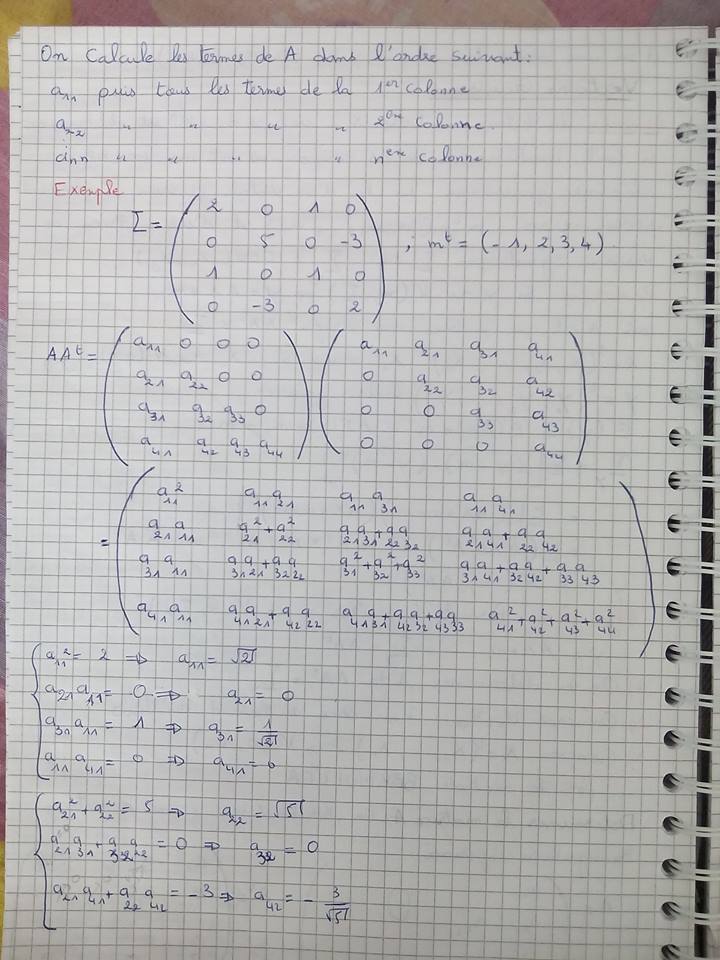 On Calcule les termes de A dans l'ordre suivant:
a₁₁ puis tous les termes de la 1er colonne
a₂₂ " " " " 2ème colonne.
aₙₙ " " " " nème colonne
Exemple
Σ = ( 2 0 1 0
0 5 0 -3
1 0 1 0
0 -3 0 2 ) , mᵗ = (-1, 2, 3, 4)
AAᵗ = ( a₁₁ 0 0 0
a₂₁ a₂₂ 0 0
a₃₁ a₃₂ a₃₃ 0
a₄₁ a₄₂ a₄₃ a₄₄ ) ( a₁₁ a₂₁ a₃₁ a₄₁
0 a₂₂ a₃₂ a₄₂
0 0 a₃₃ a₄₃
0 0 0 a₄₄ )
= ( a₁₁² a₁₁a₂₁ a₁₁a₃₁ a₁₁a₄₁
a₂₁a₁₁ a₂₁²+a₂₂² a₂₁a₃₁+a₂₂a₃₂ a₂₁a₄₁+a₂₂a₄₂
a₃₁a₁₁ a₃₁a₂₁+a₃₂a₂₂ a₃₁²+a₃₂²+a₃₃² a₃₁a₄₁+a₃₂a₄₂+a₃₃a₄₃
a₄₁a₁₁ a₄₁a₂₁+a₄₂a₂₂ a₄₁a₃₁+a₄₂a₃₂+a₄₃a₃₃ a₄₁²+a₄₂²+a₄₃²+a₄₄² )
{ a₁₁² = 2 ⇒ a₁₁ = √2
a₂₁a₁₁ = 0 ⇒ a₂₁ = 0
a₃₁a₁₁ = 1 ⇒ a₃₁ = 1/√2
a₁₁a₄₁ = 0 ⇒ a₄₁ = 0
{ a₂₁²+a₂₂² = 5 ⇒ a₂₂ = √5
a₂₁a₃₁+a₃₂a₂₂ = 0 ⇒ a₃₂ = 0
a₂₁a₄₁+a₂₂a₄₂ = -3 ⇒ a₄₂ = - 3/√5